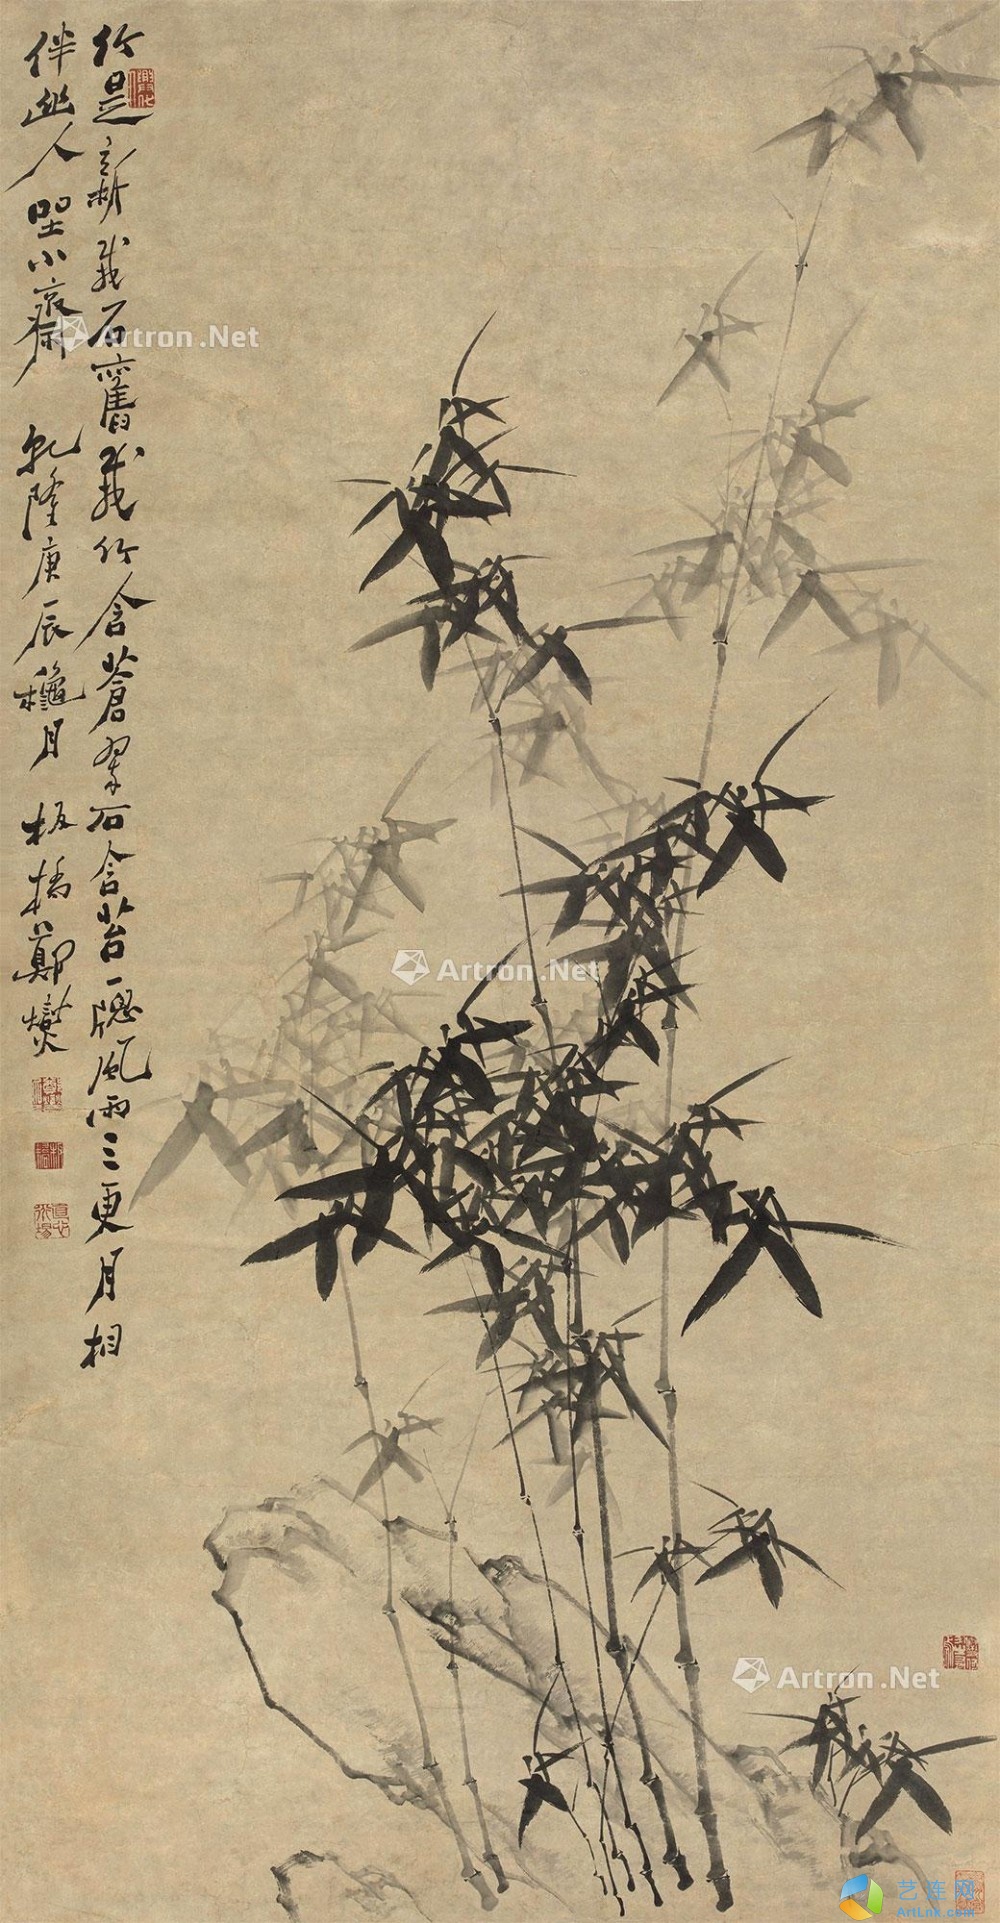 竹是新栽石舊栽竹含蒼翠石含苔一窓風雨三更月相
伴幽人坐小齋
乾隆庚辰穐月
板橋鄭燮
Artron.Net
Artron.Net
Artron.Net
艺连网
ArtLnk.com